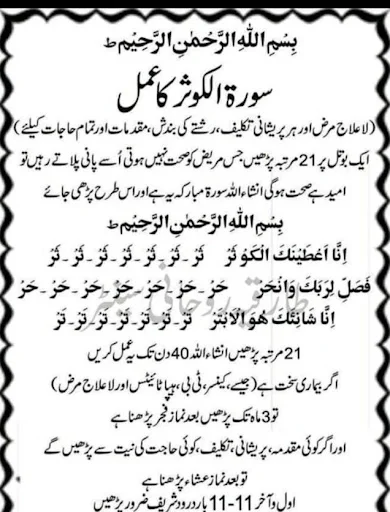 بِسْمِ اللهِ الرَّحْمٰنِ الرَّحِيْمِ ط
سورۃ الکوثر کا عمل
(لاعلاج مرض اور ہر پریشانی تکلیف، رشتے کی بندش، مقدمات اور تمام حاجات کیلئے)
ایک بوتل پر 21 مرتبہ پڑھیں جس مریض کو صحت نہیں ہوتی اُسے پانی پلاتے رہیں تو
امید ہے صحت ہوگی انشاءاللہ سورۃ مبارکہ یہ ہے اور اس طرح پڑھی جائے
بِسْمِ اللهِ الرَّحْمٰنِ الرَّحِيْمِ ط
اِنَّا اَعْطَيْنٰكَ الْكَوْ ثَرْ ثَرْ ۔ ثَرْ ۔ ثَرْ ۔ ثَرْ ۔ ثَرْ ۔ ثَرْ ۔ ثَرْ
فَصَلِّ لِرَبِّكَ وَانْحَرْ حَرْ ۔ حَرْ ۔ حَرْ ۔ حَرْ ۔ حَرْ ۔ حَرْ ۔ حَرْ
اِنَّ شَانِئَكَ هُوَ الْاَبْتَرْ تَرْ ۔ تَرْ ۔ تَرْ ۔ تَرْ ۔ تَرْ ۔ تَرْ ۔ تَرْ
طارقی روحانی سینٹر
21 مرتبہ پڑھیں انشاءاللہ 40 دن تک یہ عمل کریں
اگر بیماری سخت ہے (جیسے، کینسر، ٹی بی، ہیپاٹائیٹس اور لاعلاج مرض)
تو 3 ماہ تک پڑھیں بعد نماز فجر پڑھنا ہے
اور اگر کوئی مقدمہ، پریشانی، تکلیف، کوئی حاجت کی نیت سے پڑھیں گے
تو بعد نماز عشاء پڑھنا ہے
اول و آخر 11-11 بار درود شریف ضرور پڑھیں